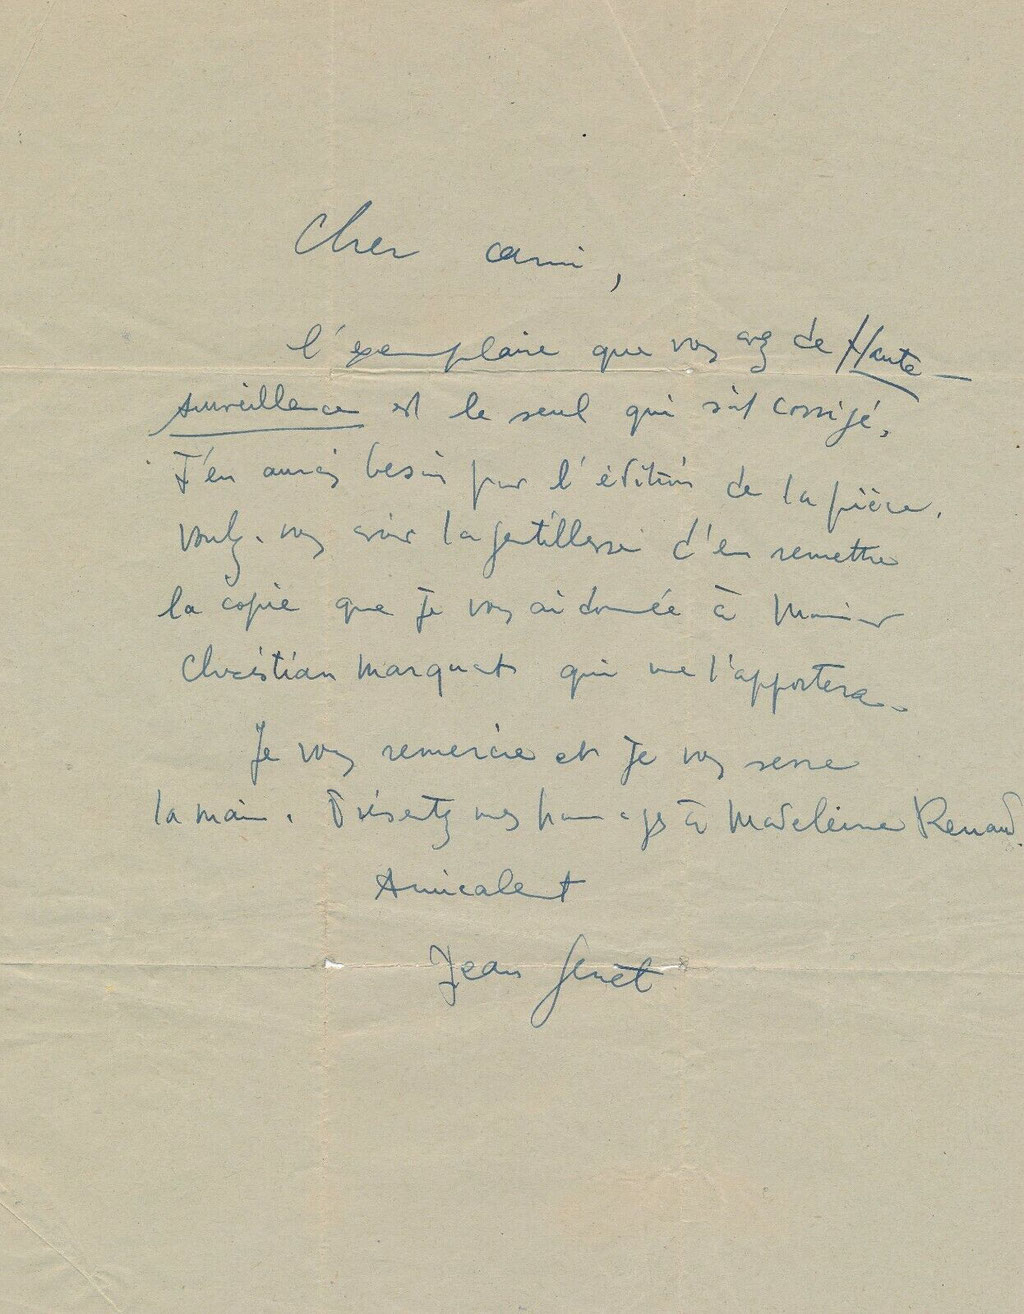 Cher ami,
l'exemplaire que vous avez de Haute-
surveillance est le seul qui soit corrigé.
J'en aurais besoin pour l'édition de la pièce.
Voulez-vous avoir la gentillesse d'en remettre
la copie que je vous ai donnée à Monsieur
Chrèstian Marquat qui me l'apportera.
Je vous remercie et je vous serre
la main. Présentez mes hommages à Madeleine Renaud.
Amicalement
Jean Genet